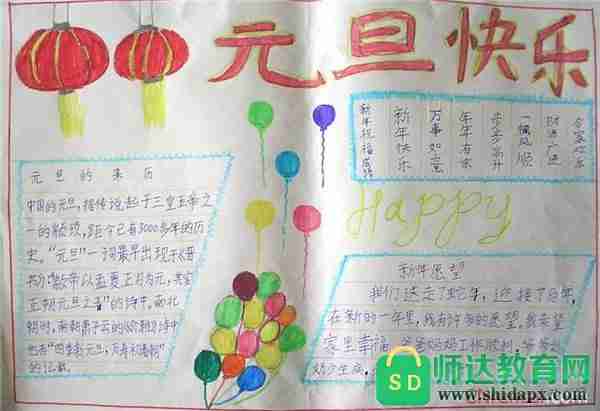 元旦快乐
新年祝福成语
新年快乐
万事如意
年年有余
步步高升
一帆风顺
财源广进
合家欢乐
元旦的来历
中国的元旦，据传说起于三皇五帝之
一的颛顼，距今已有3000多年的历
史。"元旦"一词最早出现于《晋
书》："颛帝以孟夏正月为元，其实
正朔元旦之春"的诗中。南北
朝时，南朝萧子云的《介雅》诗中
也有"四季新元旦，万寿初春朝"
的记载。
Happy
新年愿望
我们送走了蛇年，迎接了马年，
在新的一年里，我有许多的愿望，我希望
家里幸福，爸爸妈妈工作顺利，爷爷奶
奶少生病，
师达教育网
SD
www.shidapx.com